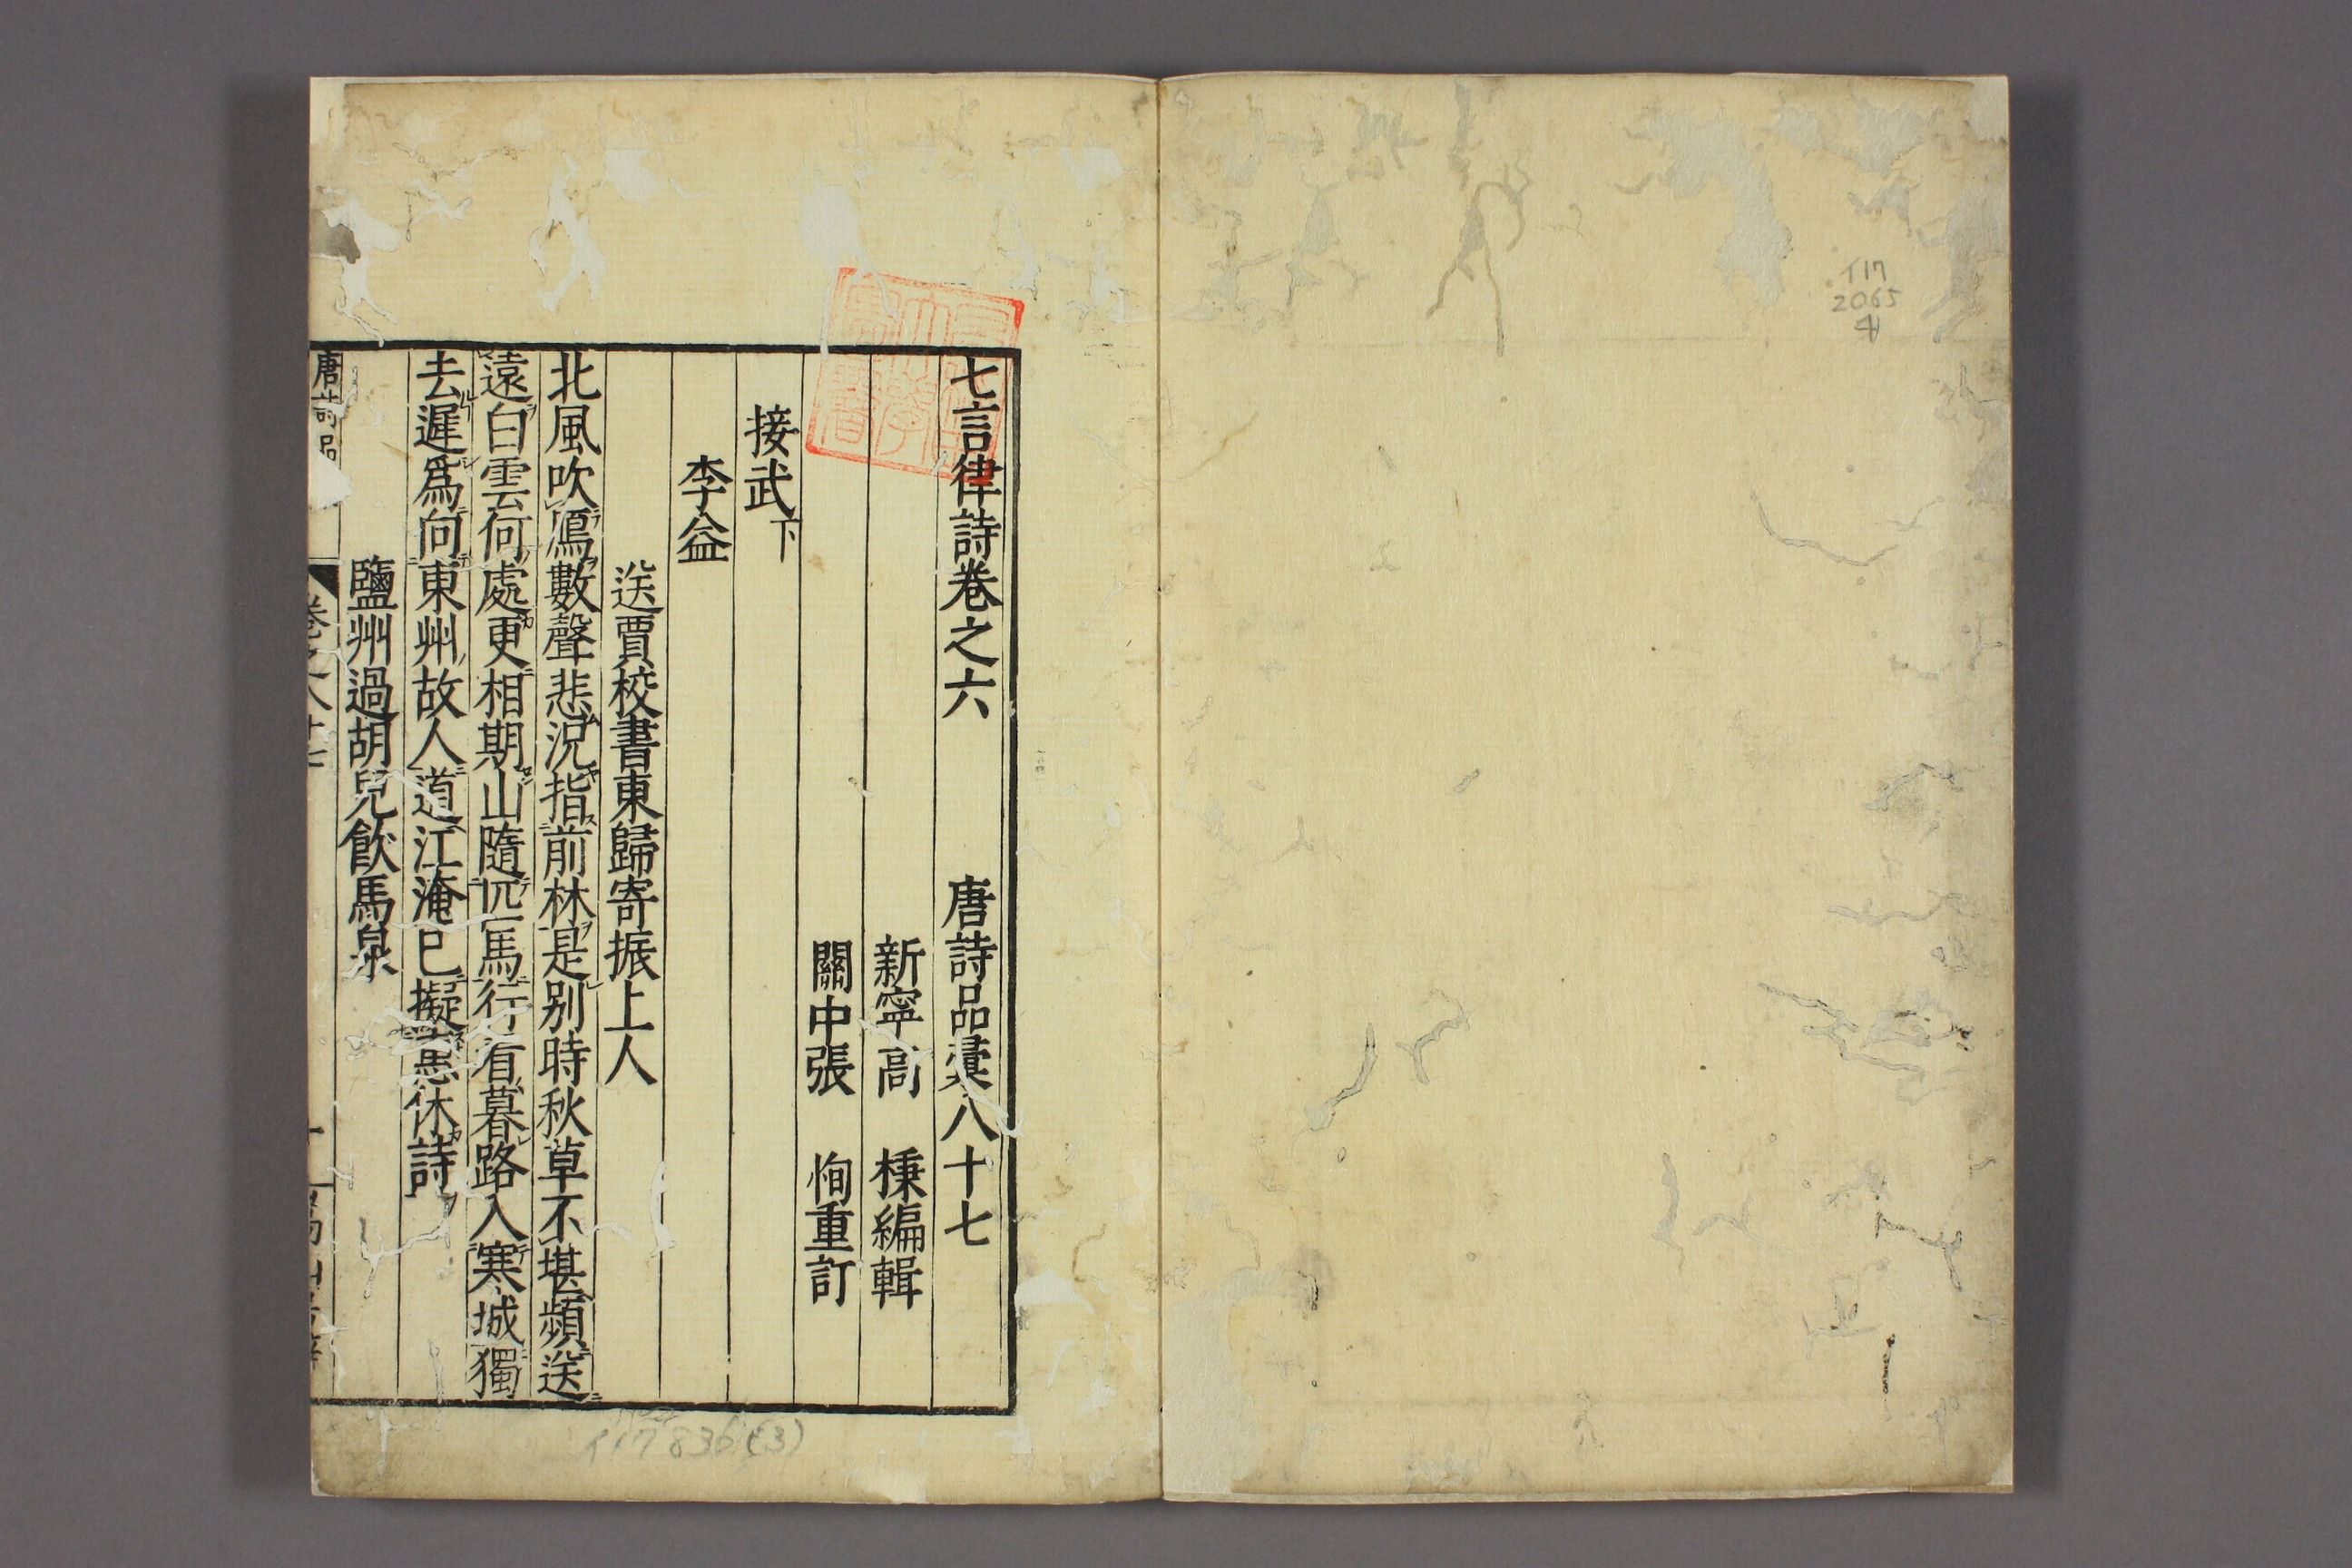 イ17
2065
41
七言律詩卷之六 唐詩品彙八十七
新寧高 棅編輯
關中張 恂重訂
接武下
李益
送賈校書東歸寄振上人
北風吹鴈數聲悲況指前林是别時秋草不堪頻送
遠白雲何處更相期山隨匹馬行看暮路入寒城獨
去遲爲向東州故人道江淹已擬惠休詩
鹽州過胡兒飮馬泉
唐詩品
卷之八十七
イ17 836(3)